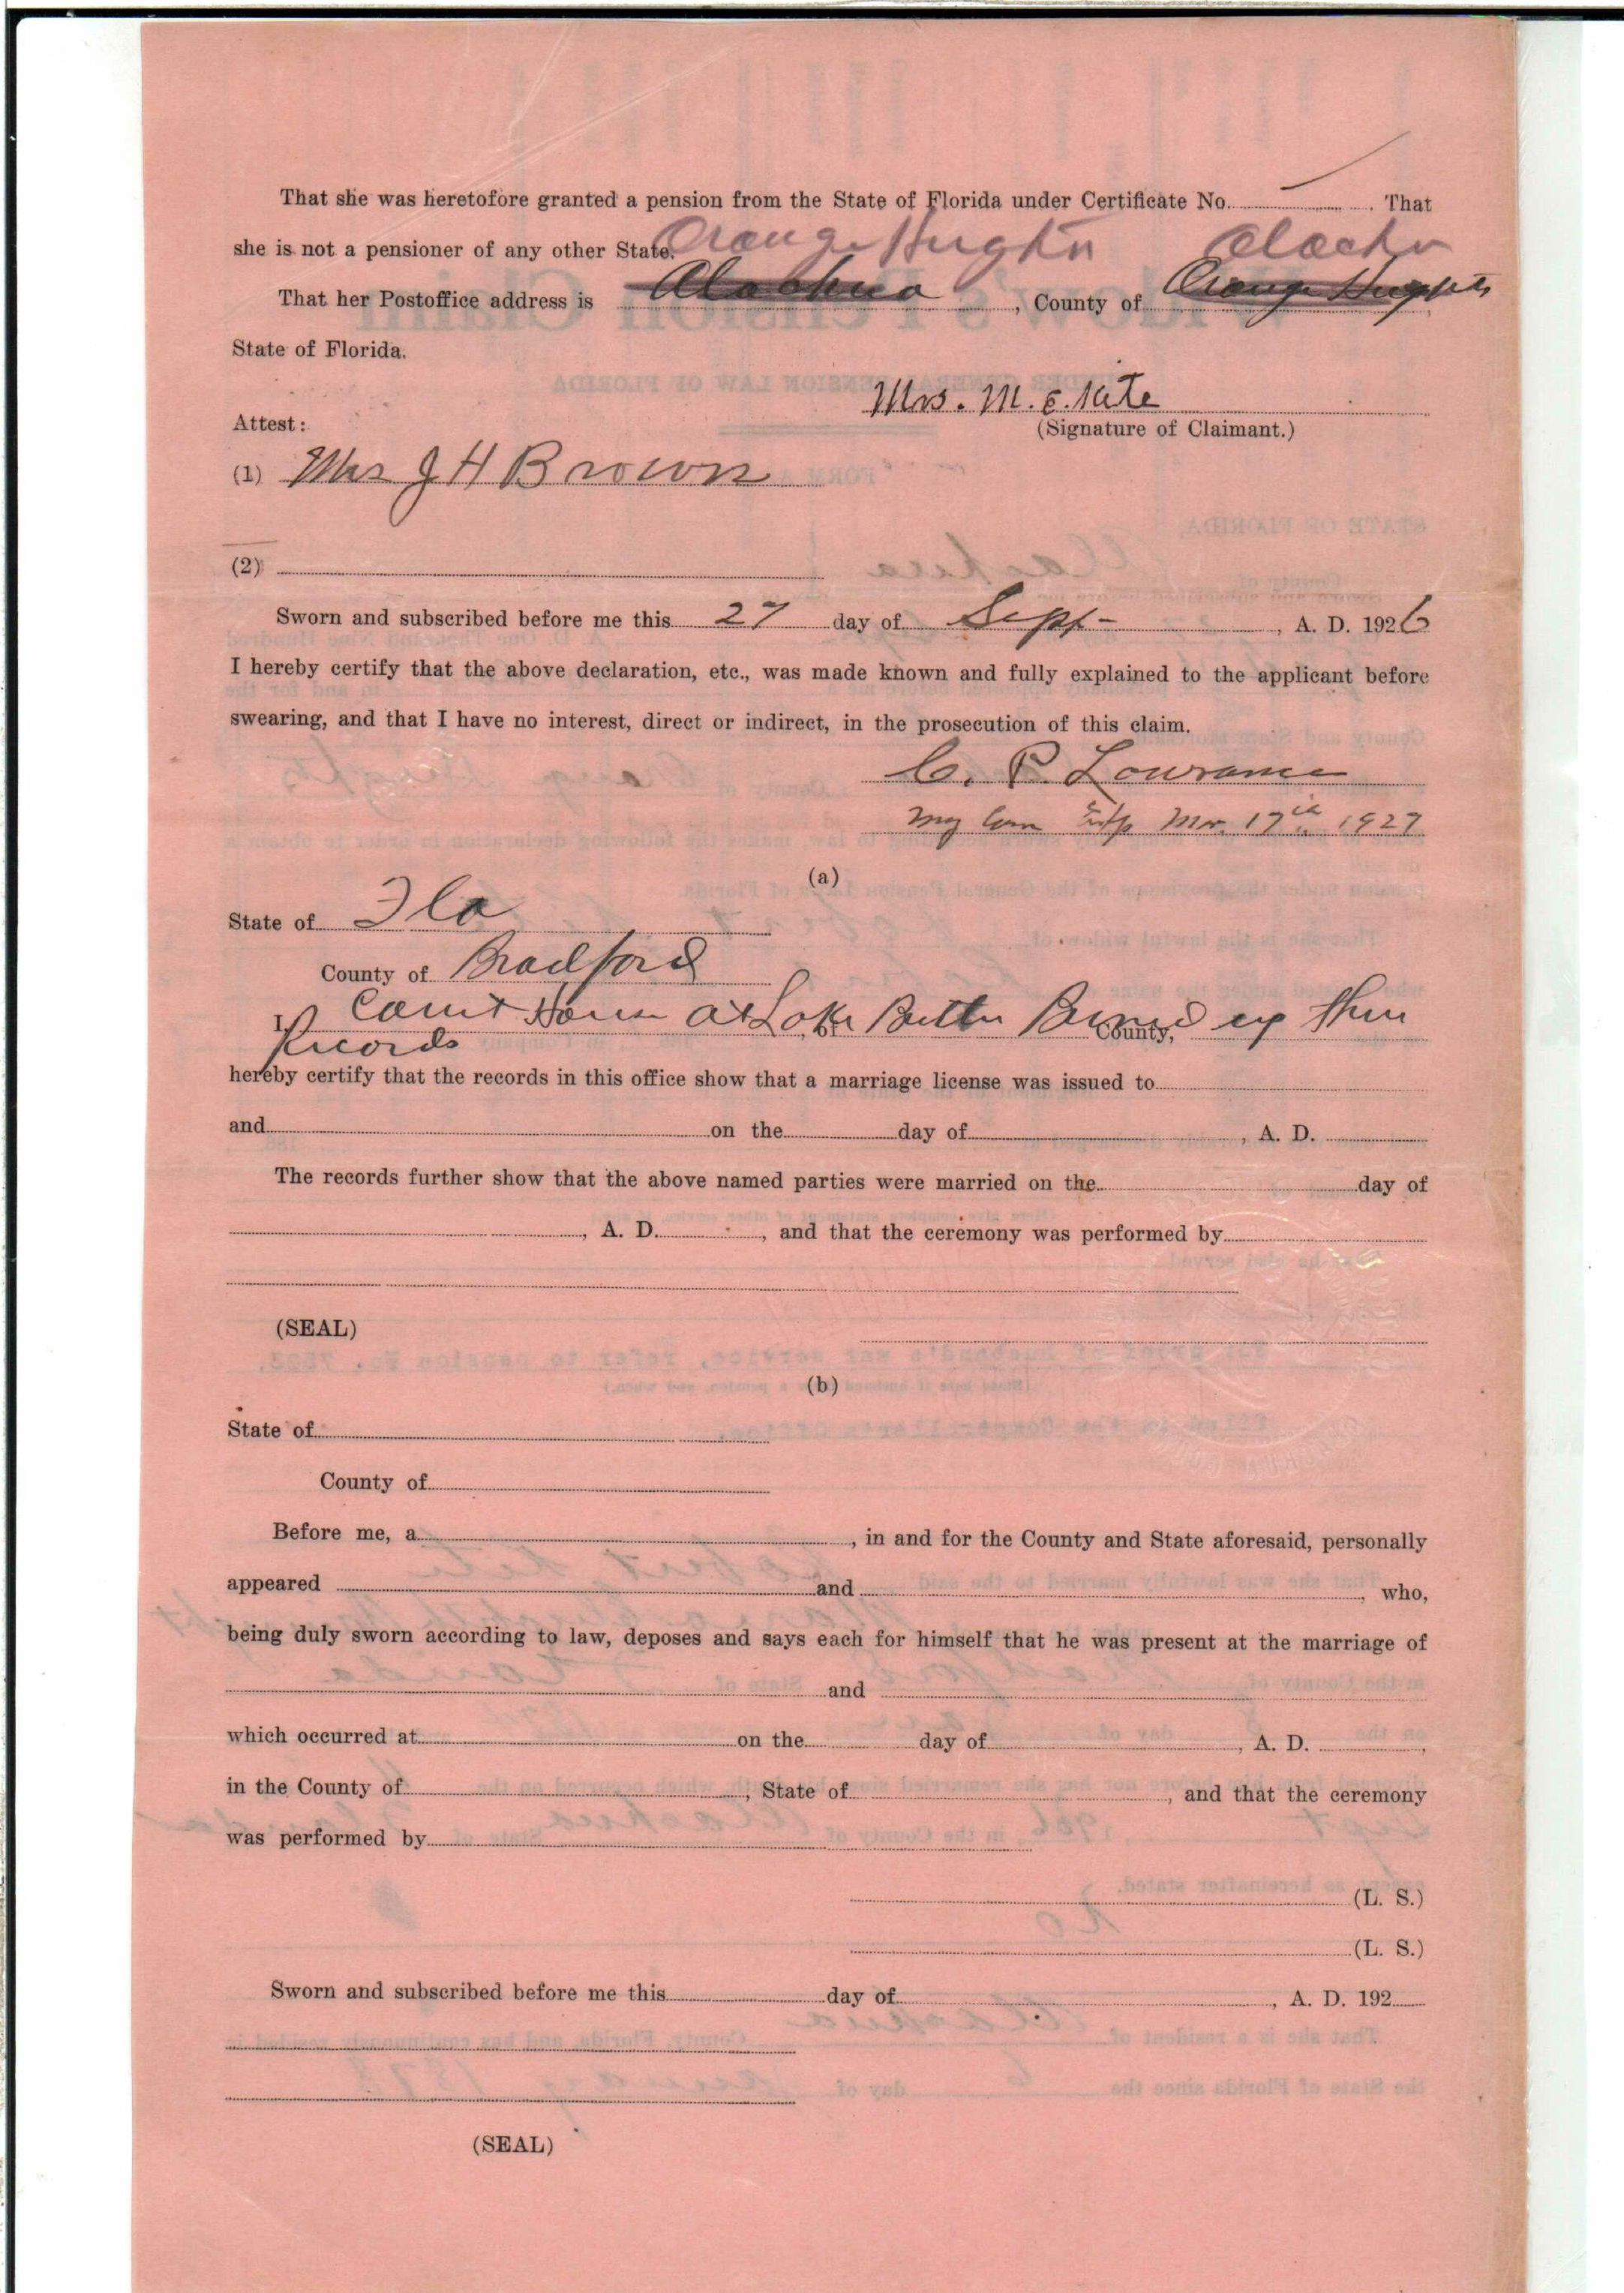 That she was heretofore granted a pension from the State of Florida under Certificate No. That
she is not a pensioner of any other State. Orange Hughts Alachu
That her Postoffice address is Alachua, County of Orange Hughts
State of Florida.
Mrs. M. E. Kite
Attest: (Signature of Claimant.)
(1) Mrs J H Brown
(2)
Sworn and subscribed before me this 27 day of Sept-, A. D. 1926
I hereby certify that the above declaration, etc., was made known and fully explained to the applicant before
swearing, and that I have no interest, direct or indirect, in the prosecution of this claim.
C. P. Lowrance
My Com Exp Mar. 17th 1927
(a)
State of Fla
County of Bradford
I, Court House at Lake Butler Burned up thur County,
Records
hereby certify that the records in this office show that a marriage license was issued to
and on the day of , A. D.
The records further show that the above named parties were married on the day of
, A. D. , and that the ceremony was performed by
(SEAL)
(b)
State of
County of
Before me, a , in and for the County and State aforesaid, personally
appeared and , who,
being duly sworn according to law, deposes and says each for himself that he was present at the marriage of
and
which occurred at on the day of , A. D. ,
in the County of , State of , and that the ceremony
was performed by
(L. S.)
(L. S.)
Sworn and subscribed before me this day of , A. D. 192
(SEAL)